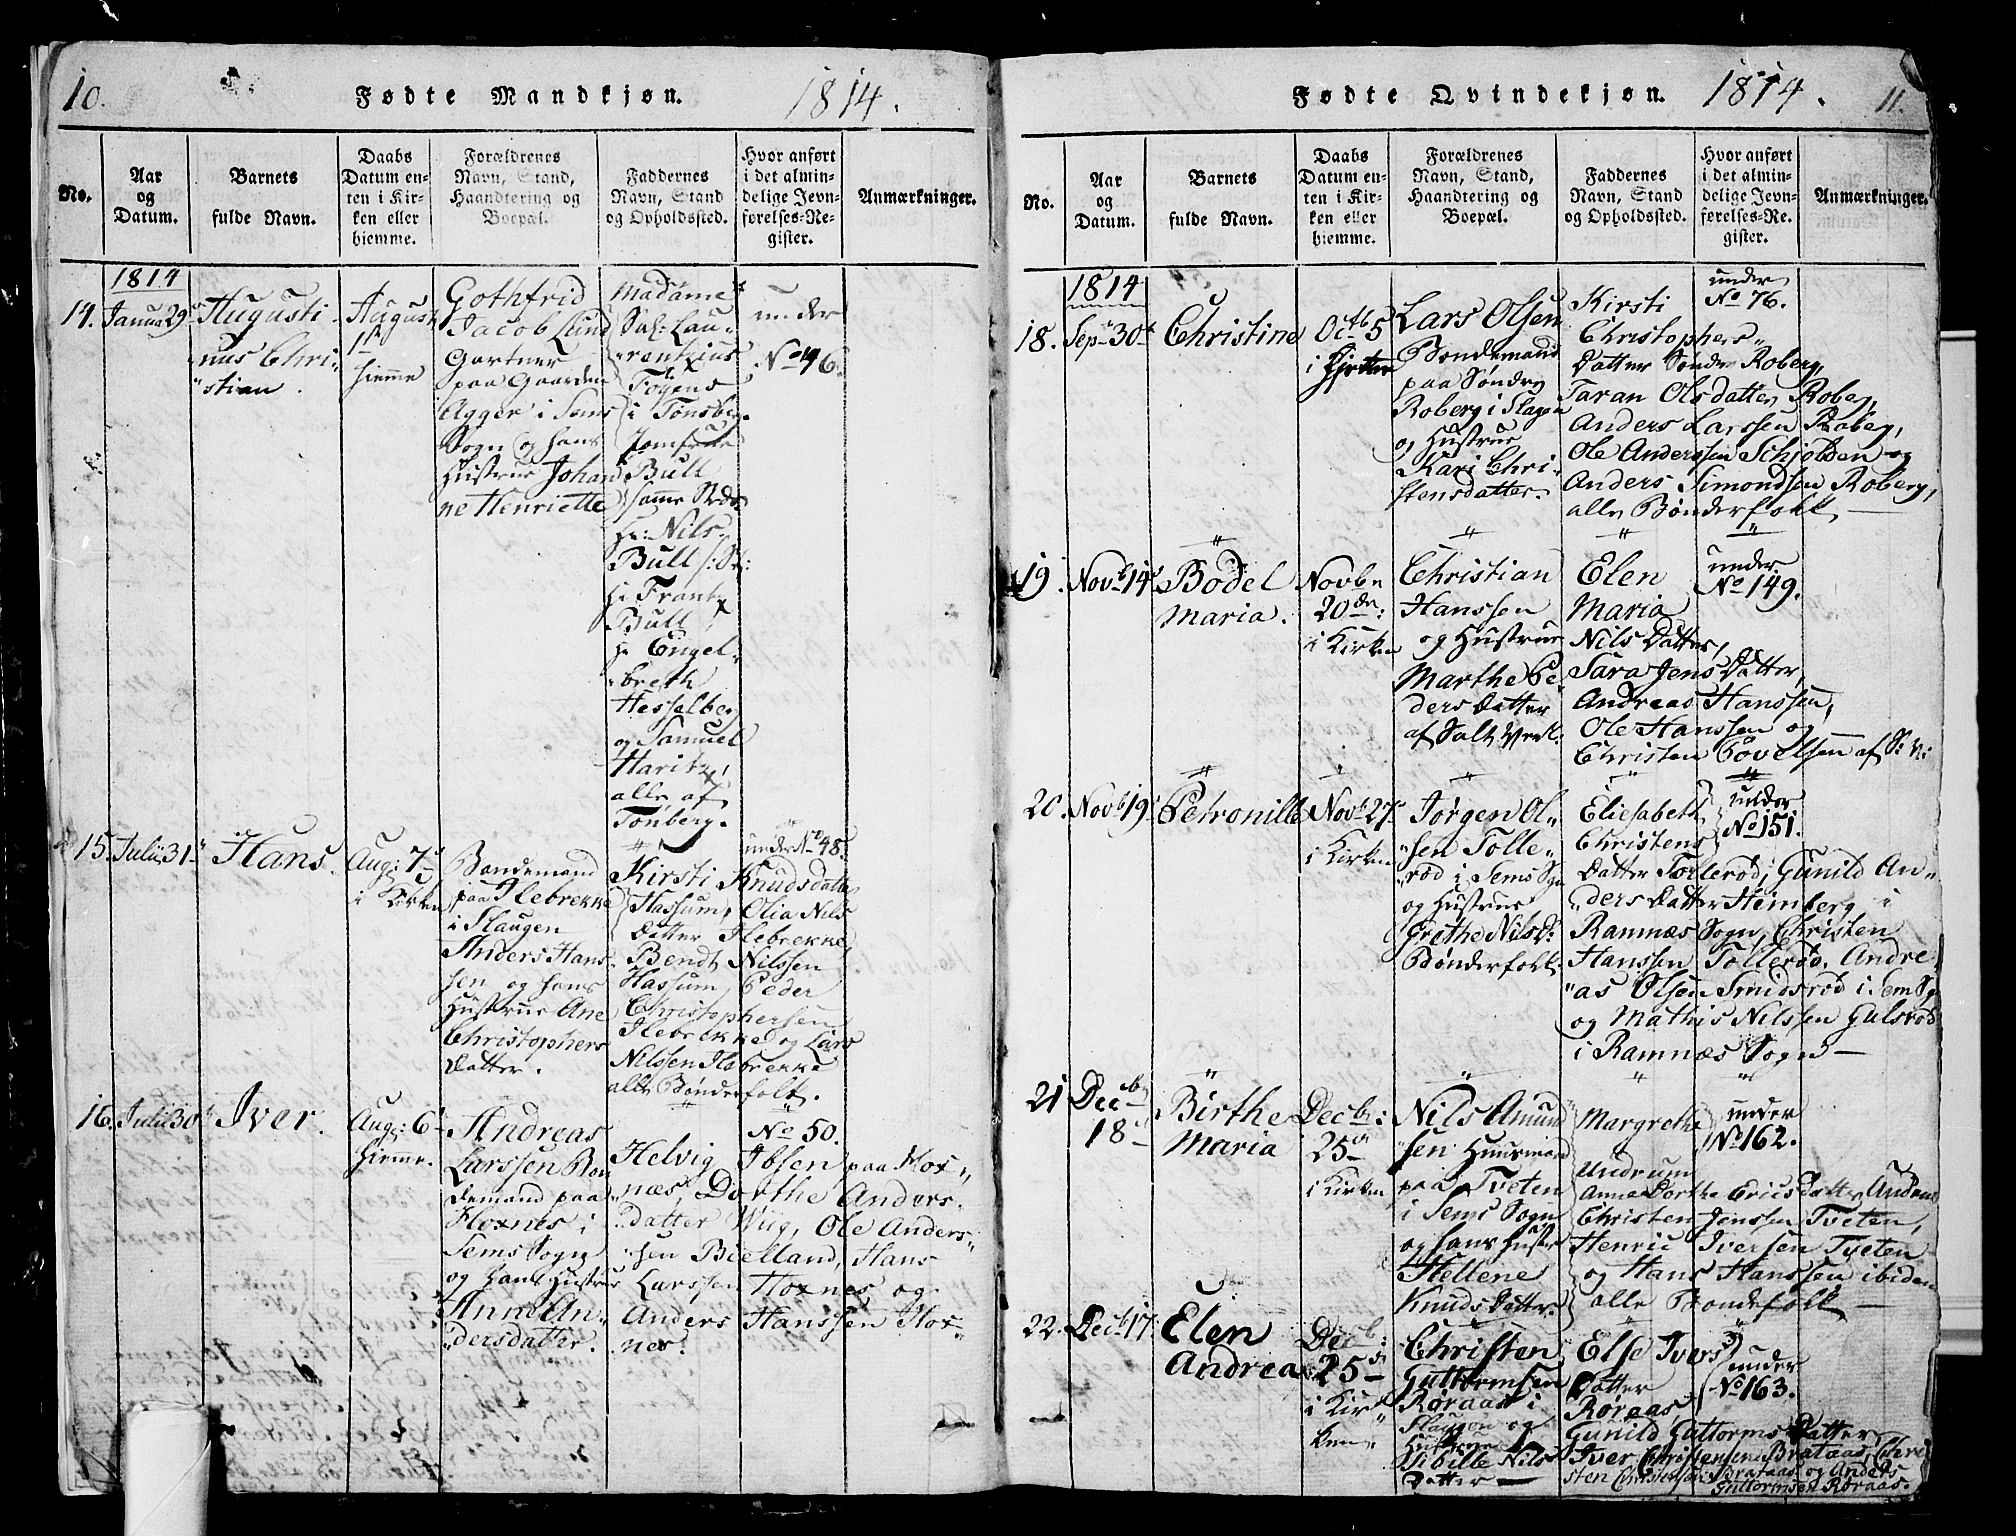 10.
Fødte Mandkjøn.
1814.
No.
Aar
og
Datum.
Barnets
fulde Navn.
Daabs
Datum en-
ten i Kir-
ken eller
hiemme.
Forældrenes
Navn, Stand,
Haandtering og
Boepæl.
Faddernes
Navn, Stand
og Opholdssted.
Hvor anført
i det almin-
delige Jevn-
førelses-Re-
gister.
Anmærkninger.
1814
14.
Janua 29
Augusti
nus Chri-
"stian.
August
1ste
hiemme
Gothfrid
Jacob Lund
Gartner
paa Gaarden
Agger i Sems
Sogn og hans
Hustrue Johan
ne Henriette
Madame
Sal: Lau-
"rentzius
Foÿens
i Tønsberg
Jomfrue
Bull
samme Stæds
Hr: Nils
Bull
Hr Frantz
Bull,
Hr Engel-
"breth
Hesselberg
og Samuel
Haritz,
alle af
Tønberg.
under
No 46.
15.
Julii 31
Hans.
Aug: 7
i Kirken
Bondemand
paa Ilebrekke
i Slaugen
Anders Hans
sen og hans
Hustrue Ane
Christophers
datter.
Kirsti Knudsdatter
Hassum, Olia Nils
datter Ilebrekke,
Bendt Nilssen
Hassum, Peder
Christophersen
Ilebrekke og Lars
Nilssen Ilebrekke
alle Bønderfolk.
under No 48.
16.
Julii 30
Iver.
Aug: 6
hiemme.
Andreas
Larssen Bon
demand paa
Hoxnes i
Sems Sogn
og hans Hustrue
Anne An-
"dersdatter.
Helvig Ibsen paa Hox-
"næs, Dorthe Anders-
"datter Wiig, Ole Anders-
"sen Bielland, Hans
Larssen Hoxnes og
Anders Hanssen Hox-
nes.
No 50.
Fødte Qvindekjøn.
1814.
11.
No.
Aar
og
Datum.
Barnets
fulde Navn.
Daabs
Datum en-
ten i Kir-
ken eller
hiemme.
Forældrenes
Navn, Stand,
Haandtering og
Boepæl.
Faddernes
Navn, Stand
og Opholdssted.
Hvor anført
i det almin-
delige Jevn-
førelses-Re-
gister.
Anmærkninger.
1814
18.
Sep 30
Christine
Octb 5
i
Lars Olsen
Bondemand
paa Søndre
Roberg i Slagen
og Hustrue
Kari Chri-
stensdatter.
Kirsti
Christophers-
datter Søndre Roberg,
Taran Olsdatter Roberg,
Anders Larssen Roberg,
Ole Anderssen Schjølden og
Anders Simondsen Roberg,
alle Bønderfolk.
under
No 76.
19.
Novb 14
Bodel
Maria.
Novbr
20de:
i Kirken
Christian
Hanssen
og Hustrue
Marthe Pe-
ders datter
af Salt Verk:
Elen
Maria
Nils Datter,
Sara Jens Datter,
Andreas Hanssen,
Ole Hanssen og
Christen Povelsen af S: V:
under
No 149.
20.
Novb 19
Petronille
Novb 27
i Kirken
Jørgen Ol-
"sen Tolle-
"rød i Sems Sogn
og Hustrue
Grethe Nilsd:
Bønderfolk:
Eliesabeth
Christens
Datter Tollerød, Gunild An-
"ders Datter Hemberg i
Ramnæs Sogn, Christen
Hanssen Tollerød, Andre
"as Olsen Smidsrød i Sem Sogn
og Mathis Nilssen Gulsrød
i Ramnæs Sogn
under
No 151.
21
Decb
18
Birthe
Maria
Decb:
25
i Kirken
Nils Amund
"sen Huusmand
paa Tveten
i Sems Sogn
og hans Hustr
Hellene
Knuds Datter
Margrethe
Undrum
Anne Dorthe Erics Datter
Christen Jenssen Tveten,
Henric Iversen Tveten
og Hans Hanssen ibiden
alle Bondefolk
under
No 162.
22.
Decb 17
Elen
Andrea
Decb:
25
i Kir
ken
Christen
Guttormsen
Røraas i
Slaugen og
Hustrue
Sibille Nils
Datter
Else Ivers
Datter
Røraas,
Gunild Guttorms Datter,
Iver Christensen Brataas, Chri
sten Christensen Brataas og Anders
Guttormsen Røraas.
under
No 163.